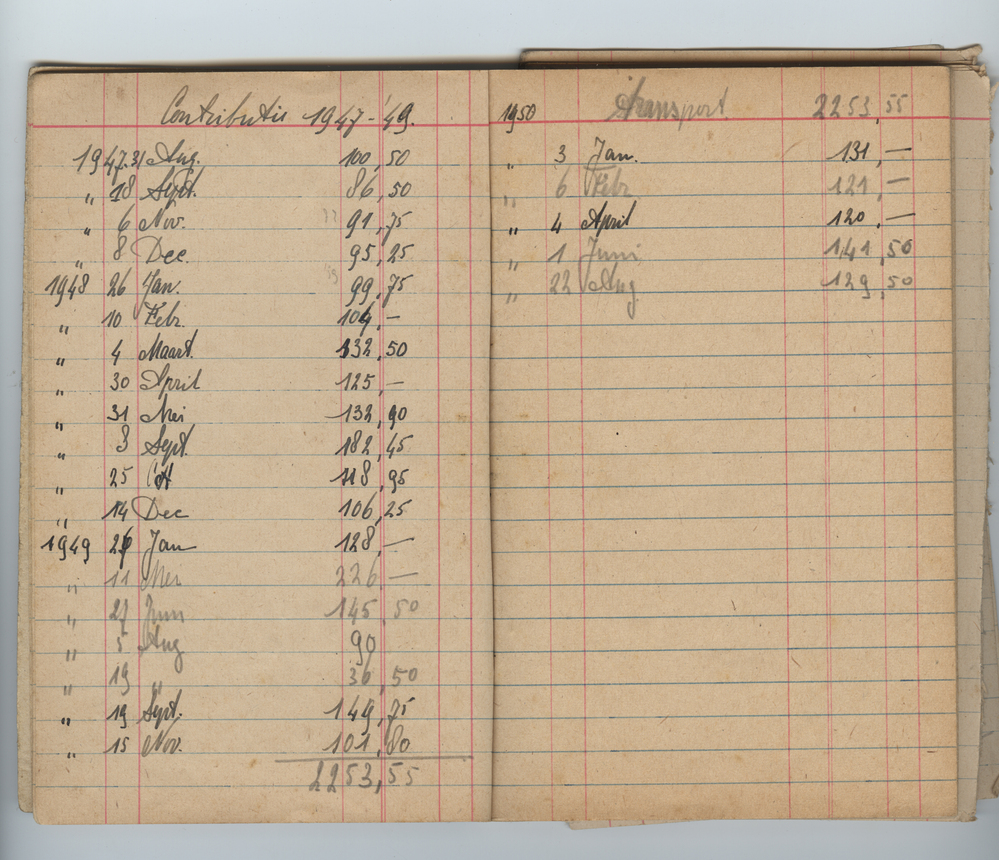 Contributie 1947-'49.
1947. 31 Aug. 100,50
„ 18 Sept. 86,50
„ 6 Nov. 91,75
„ 8 Dec. 95,25
1948 26 Jan. 99,75
„ 10 Febr. 104,-
„ 4 Maart. 132,50
„ 30 April 125,-
„ 31 Mei 132,90
„ 3 Sept. 182,45
„ 25 Oct 118,95
„ 14 Dec 106,25
1949 Jan 128,-
„ 11 Mei 226,-
„ 27 Juni 145,50
„ 5 Aug 90
„ 19 „ 36,50
„ 19 Sept. 149,75
„ 15 Nov. 101,80
2253,55
1950 Transport 2253,55
„ 3 Jan. 131,-
„ 6 Febr 121,-
„ 4 April 120,-
„ 1 Juni 141,50
„ 22 Aug 129,50